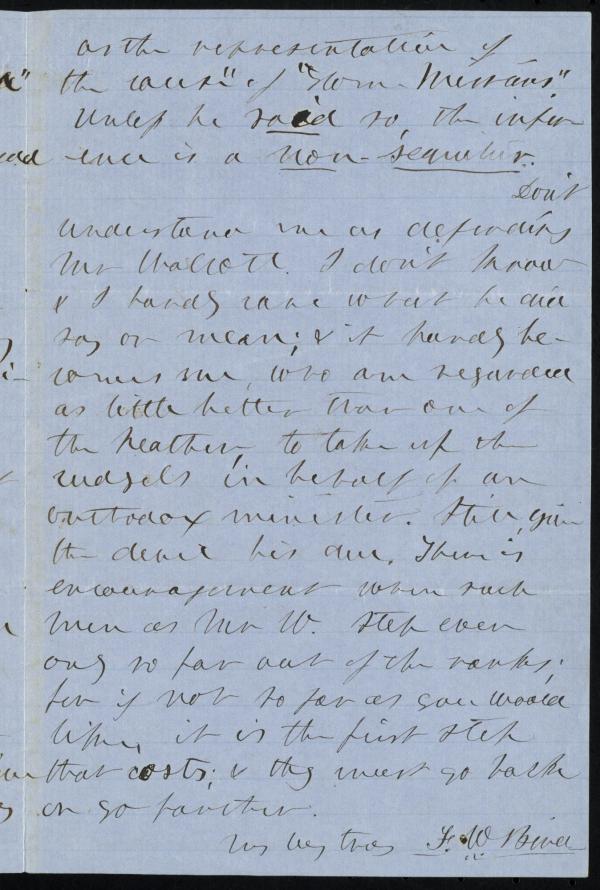 as the representation of
the cause" of "Home Missions"
Unless he said so, the infer-
ence is a non-sequitur.
Don't
understand me as defending
Mr Walcott. I don't know
& I hardly care what he did
say or mean; & it hardly be-
comes me, who am regarded
as little better than one of
the heathen, to take up the
cudgels in behalf of an
orthodox minister. Still, give
the devil his due. There is
encouragement when such
men as Mr W. step even
only so far out of the ranks;
for if not so far as you would
like, it is the first step
that costs; & they must go back
or go farther.
F. W. Bird